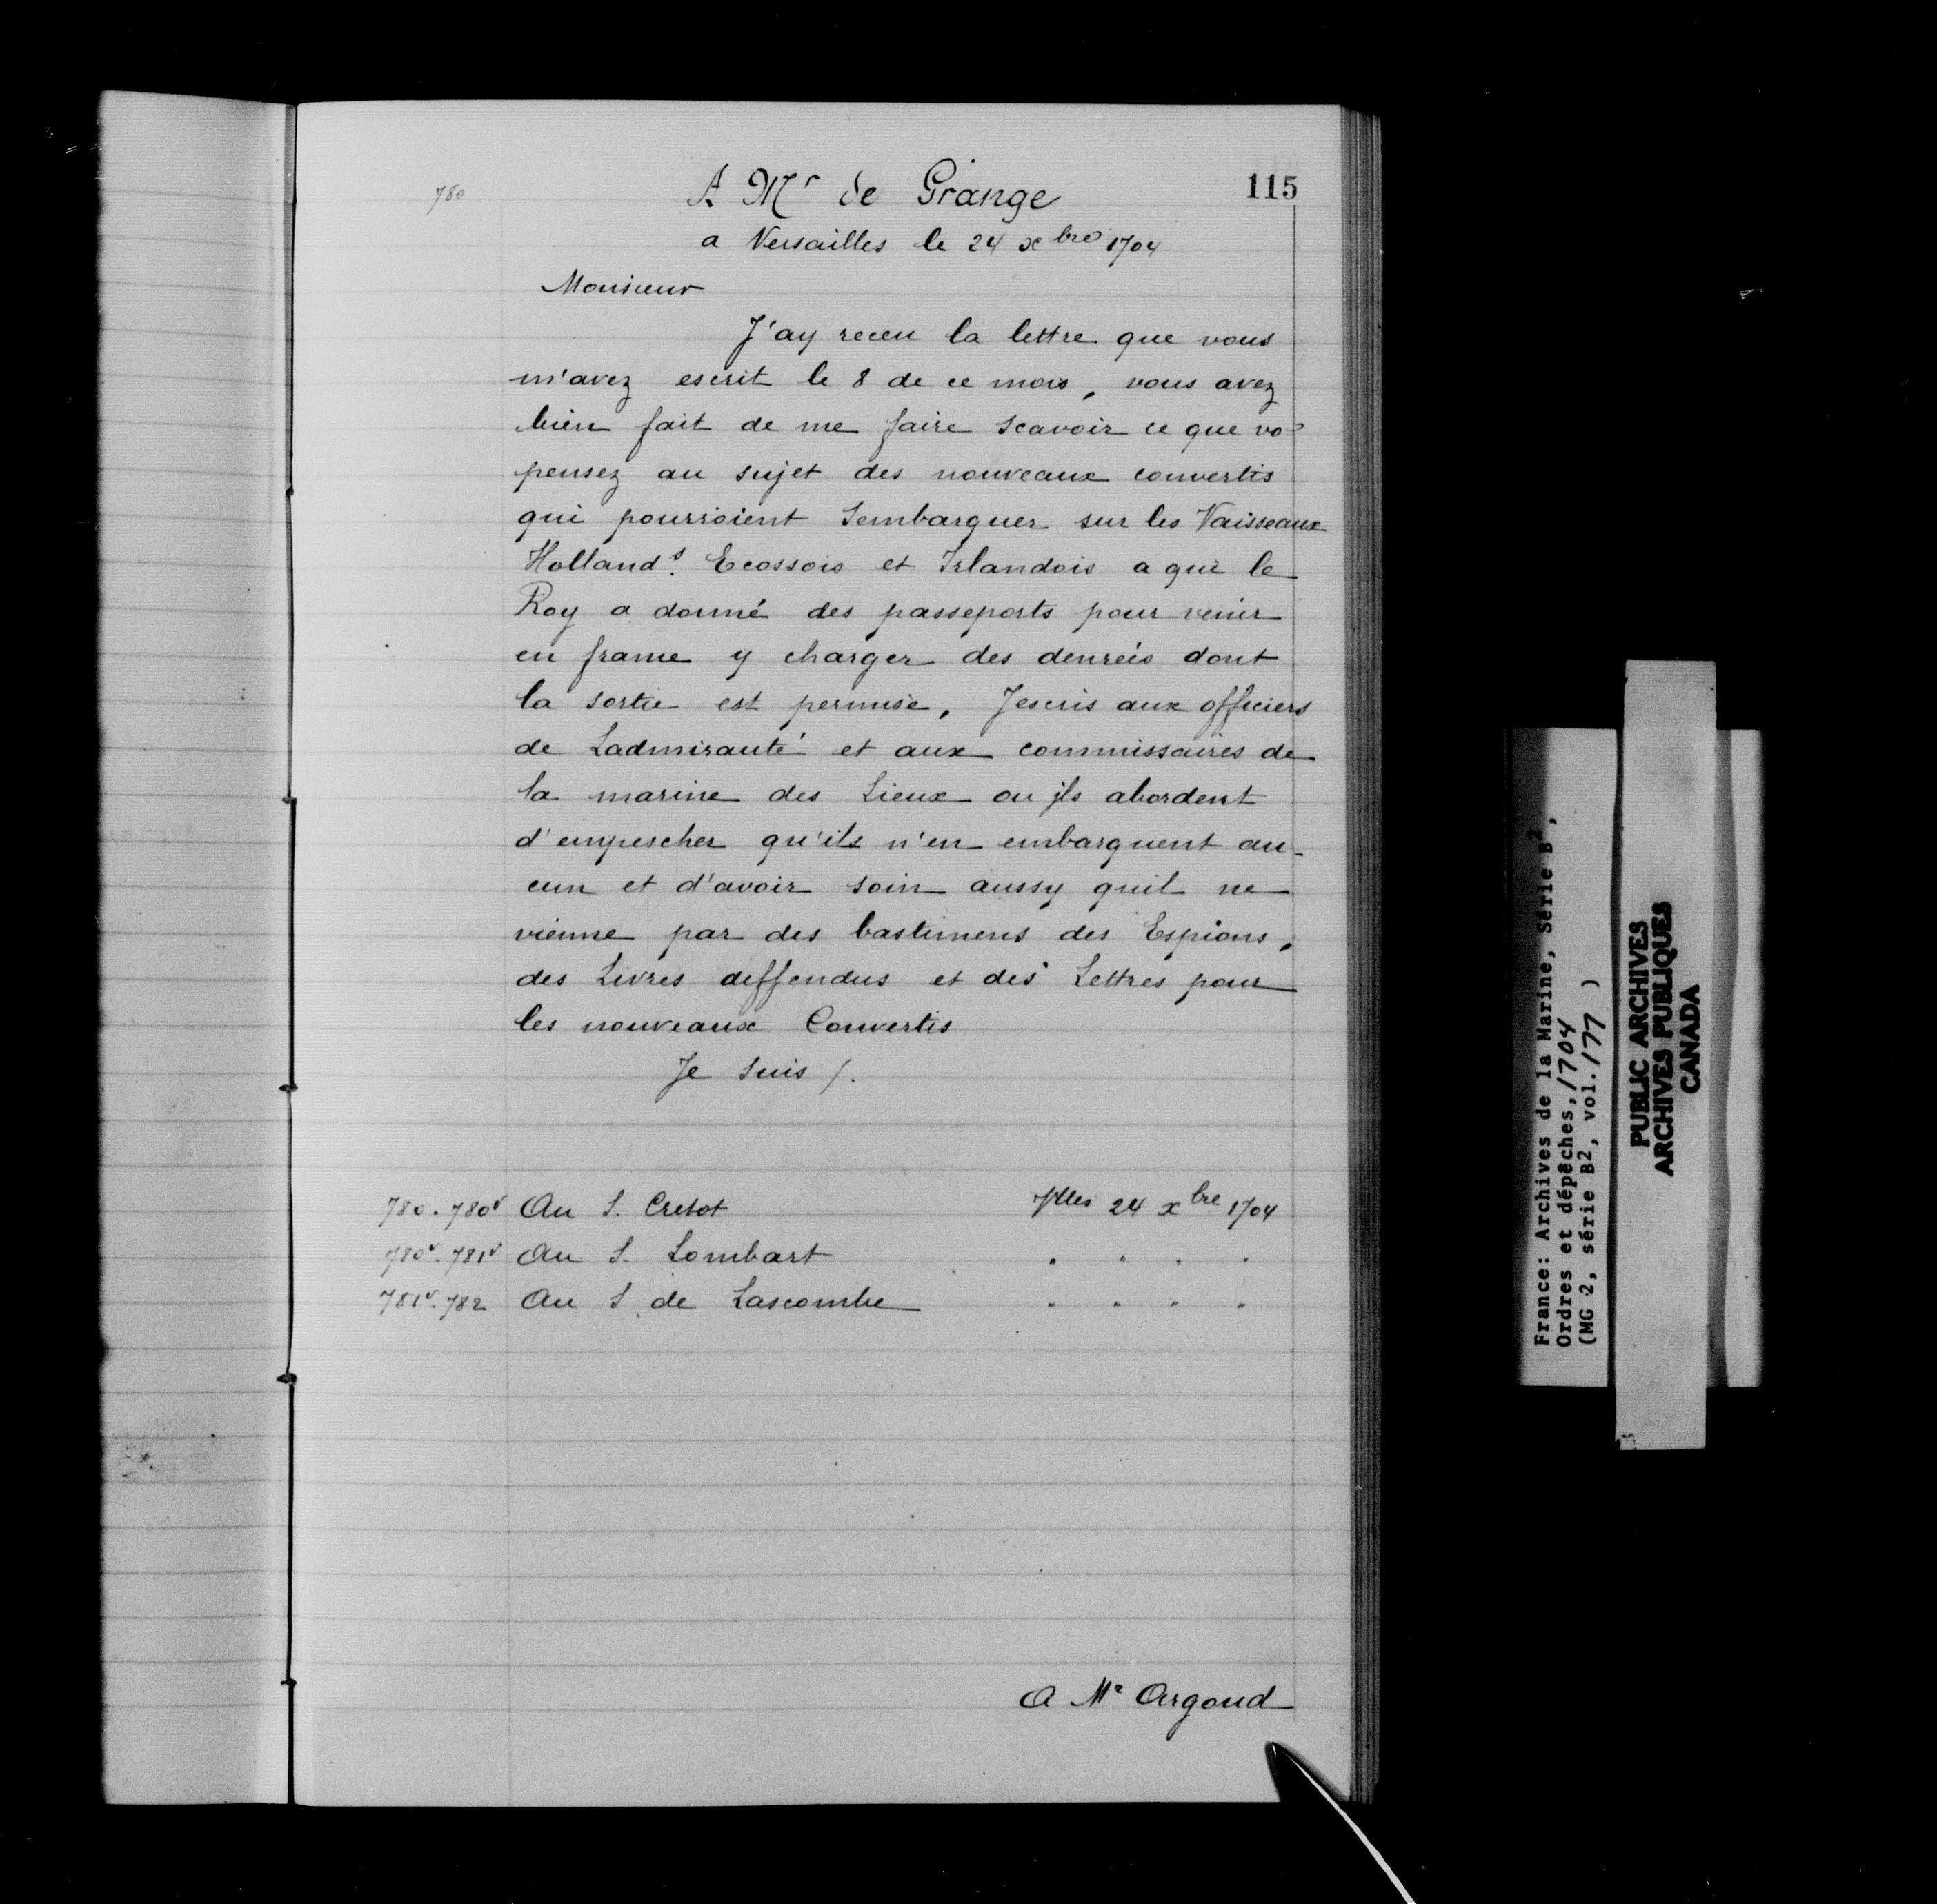 780
A Mr de Grange
115
a Versailles le 24 xbre 1704
Monsieur
J'ay receu la lettre que vous
m'avez escrit le 8 de ce mois, vous avez
bien fait de me faire scavoir ce que vos
pensez au sujet des nouveaux convertis
qui pourroient Sembarquer sur les Vaisseaux
Holland.s Ecossois et Irlandois a qui le
Roy a donné des passeports pour venir
en france y charger des denreés dont
la sortie est permise, Jescris aux officiers
de Ladmirauté et aux commissaires de
la marine des Lieux ou jls abordent
d'empescher qu'ils n'en embarquent au-
cun et d'avoir soin aussy quil ne
vienne par des bastimens des Espions,
des Livres deffendus et des Lettres pour
les nouveaux Convertis
Je suis /.
780. 780v Au S. Cretot Vlles 24 xbre 1704
780v. 781v Au S. Lombart " " " "
781v. 782 Au S. de Lascombe " " " "
A Mr Argoud
France: Archives de la Marine, Série B2,
Ordres et dépêches, 1704
(MG 2, série B2, vol. 177 )
PUBLIC ARCHIVES
ARCHIVES PUBLIQUES
CANADA